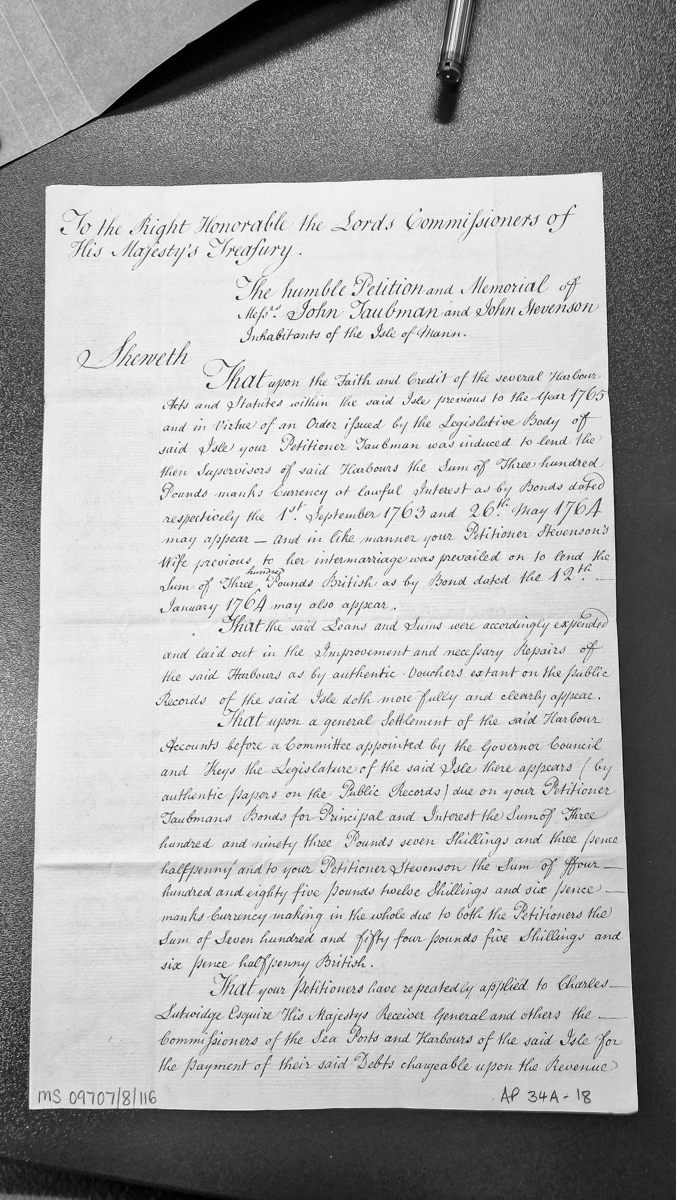 To the Right Honorable the Lords Commissioners of
His Majesty's Treasury.
The humble Petition and Memorial of
Messrs. John Taubman and John Stevenson
Inhabitants of the Isle of Mann.
Sheweth
That upon the Faith and Credit of the several Harbour
Acts and Statutes within the said Isle previous to the Year 1765
and in Virtue of an Order issued by the Legislative Body of
said Isle your Petitioner Taubman was induced to lend the
then Supervisors of said Harbours the Sum of Three hundred
Pounds manks Currency at lawful Interest as by Bonds dated
respectively the 1st. September 1763 and 26th. May 1764
may appear — and in like manner your Petitioner Stevenson's
Wife previous to her intermarriage was prevailed on to lend the
Sum of Three hundred Pounds British as by Bond dated the 12th. —
January 1764 may also appear.
That the said Loans and Sums were accordingly expended
and laid out in the Improvement and necessary Repairs of
the said Harbours as by authentic Vouchers extant on the public
Records of the said Isle doth more fully and clearly appear.
That upon a general Settlement of the said Harbour
Accounts before a Committee appointed by the Governor Council
and Keys the Legislature of the said Isle there appears (by
authentic papers on the Public Records) due on your Petitioner
Taubmans Bonds for Principal and Interest the Sum of Three
hundred and ninety three Pounds seven Shillings and three pence
halfpenny and to your Petitioner Stevenson the Sum of ffour —
hundred and eighty five pounds twelve Shillings and six pence —
manks Currency making in the whole due to both the Petitioners the
Sum of Seven hundred and fifty four pounds five Shillings and
six pence halfpenny British.
That your petitioners have repeatedly applied to Charles —
Lutwidge Esquire His Majestys Receiver General and others the —
Commissioners of the Sea Ports and Harbours of the said Isle for
the payment of their said Debts chargeable upon the Revenue
MS 09707/8/116
AP 34A - 18